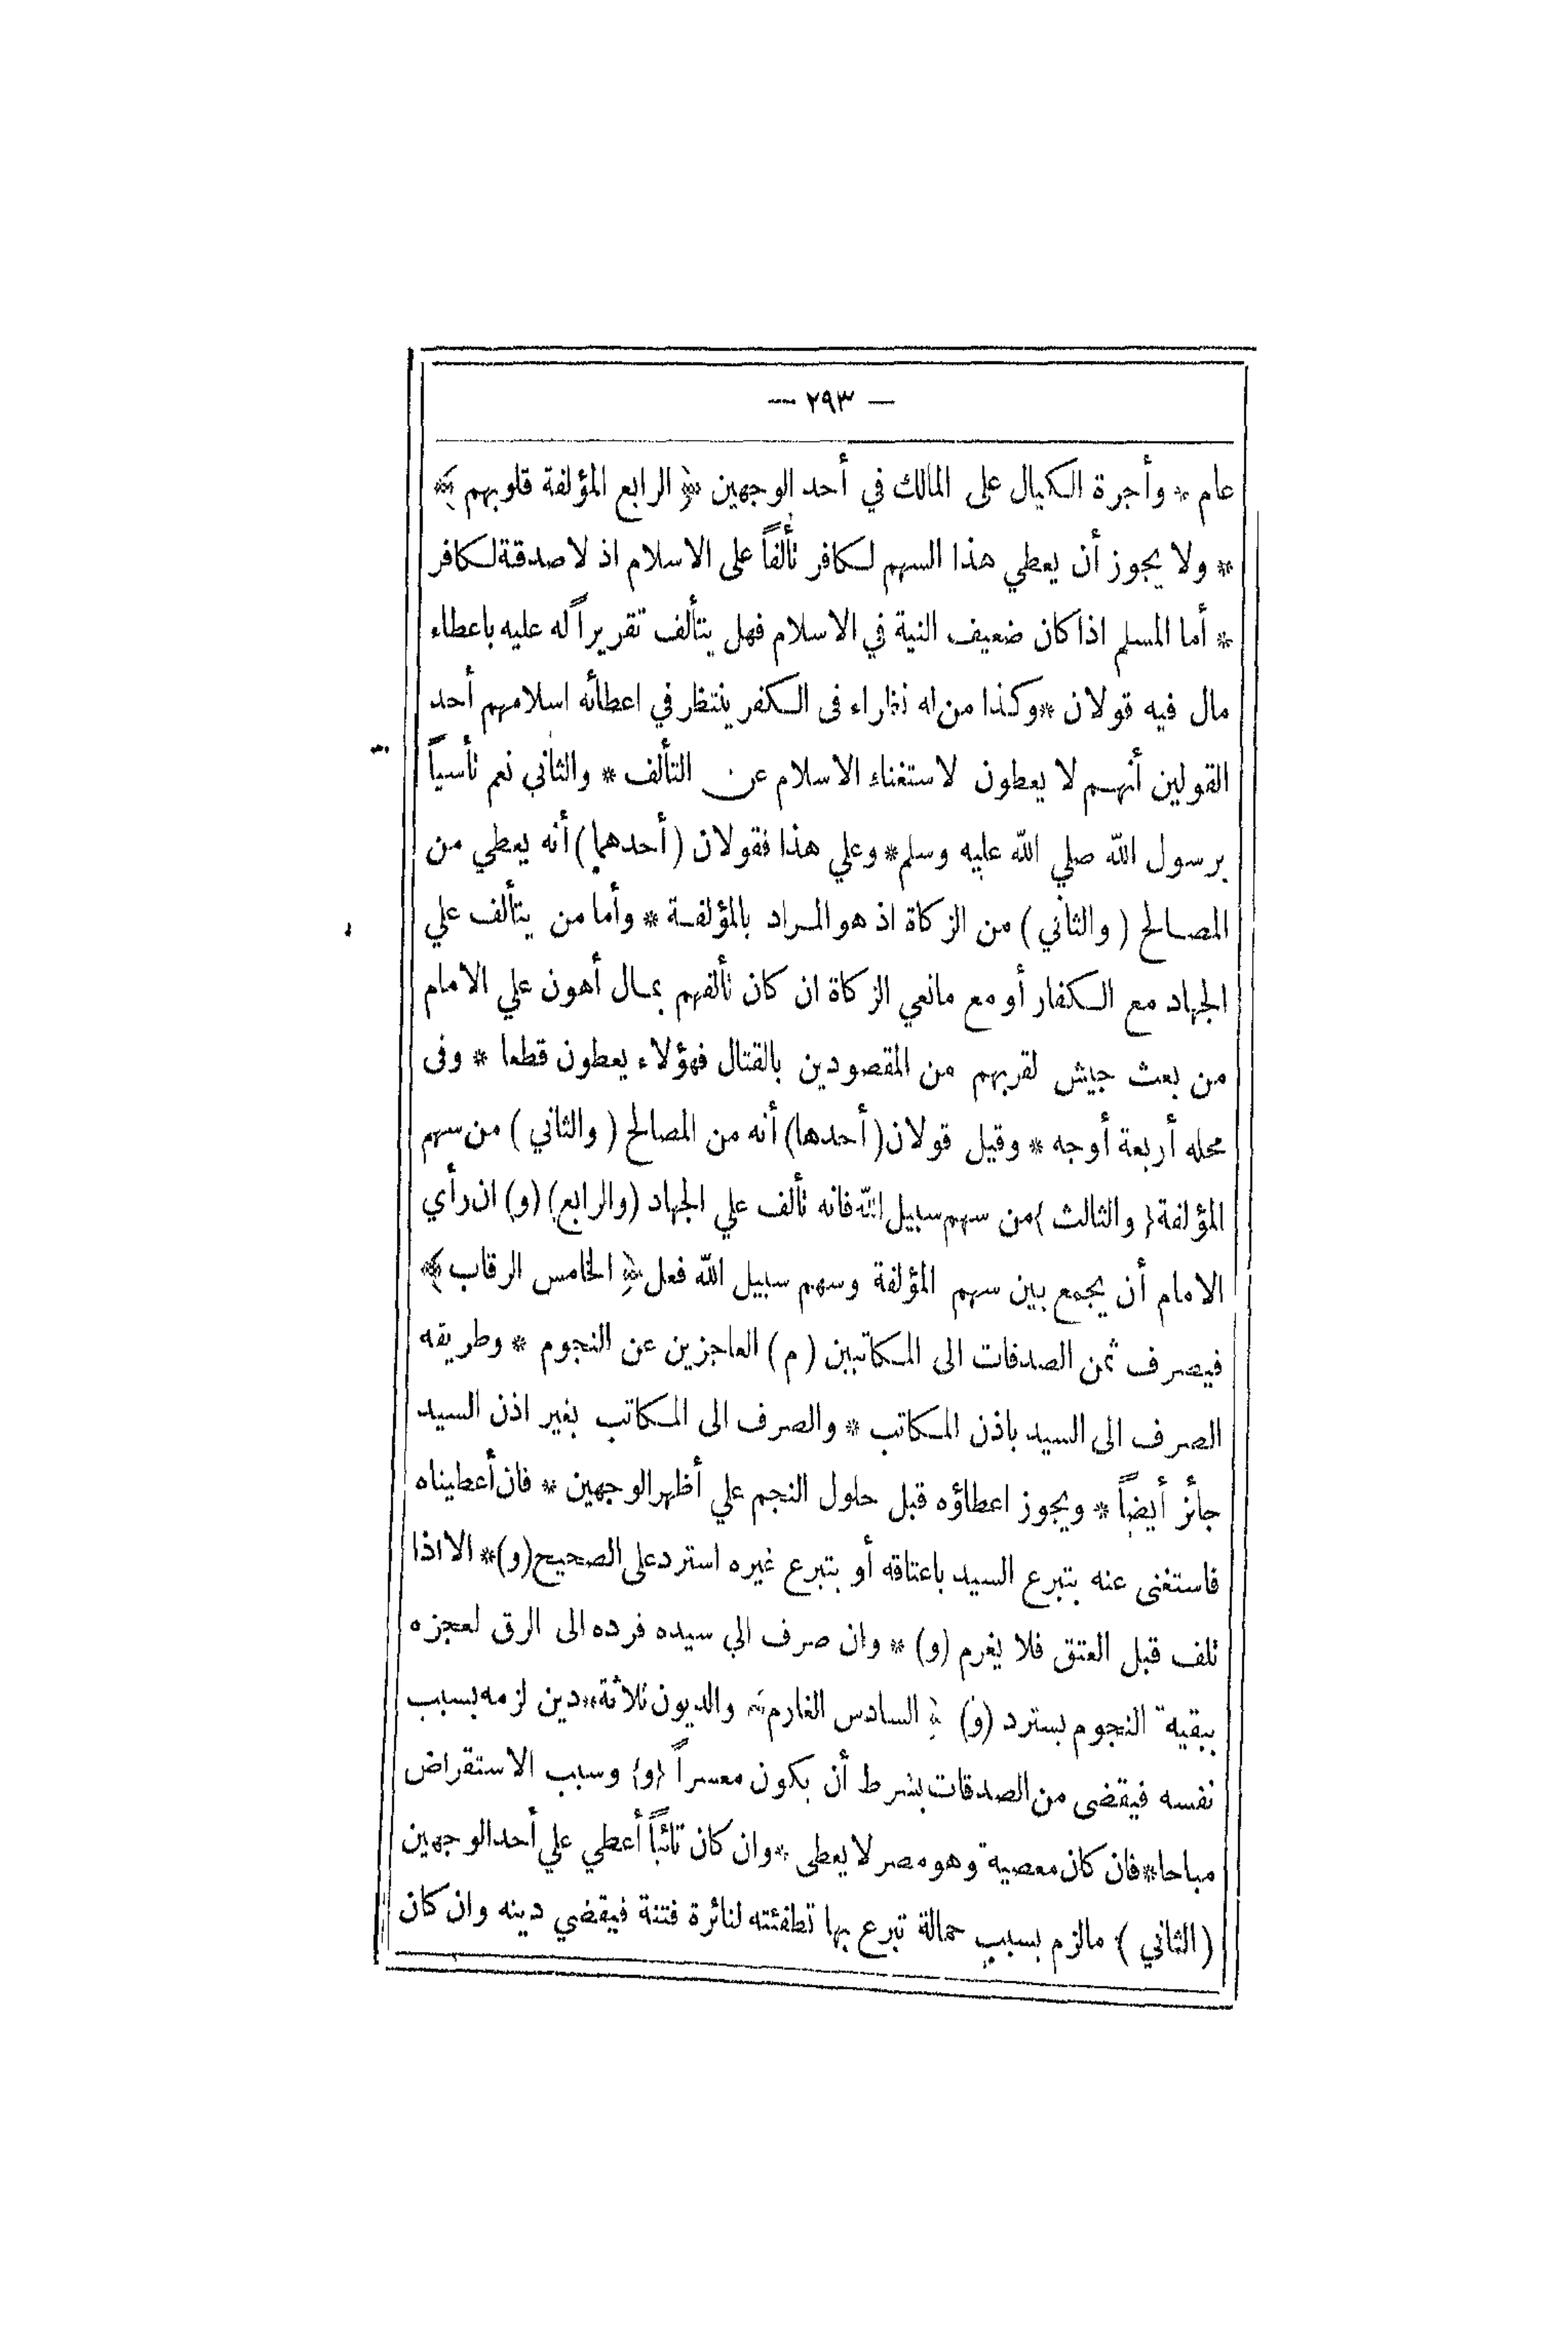 — ٢٩٣ —
عام * وأجرة الكيال على المالك في أحد الوجهين ﴿ الرابع المؤلفة قلوبهم ﴾
* ولا يجوز أن يعطي هذا السهم لكافر تألفاً على الاسلام اذ لا صدقة لكافر
* أما المسلم اذا كان ضعيف النية في الاسلام فهل يتألف تقريراً له عليه باعطاء
مال فيه قولان * وكذا من له نظراء فى الكفر ينتظر في اعطائه اسلامهم أحد
القولين أنهم لا يعطون لاستغناء الاسلام عن التألف * والثاني نعم تأسياً
برسول الله صلي الله عليه وسلم * وعلي هذا فقولان ( أحدهما ) أنه يعطي من
المصالح ( والثاني ) من الزكاة اذ هو المراد بالمؤلفة * وأما من يتألف علي
الجهاد مع الكفار أو مع مانعي الزكاة ان كان تألفهم بمال أهون علي الامام
من بعث جيش لقربهم من المقصودين بالقتال فهؤلاء يعطون قطعا * وفى
محله أربعة أوجه * وقيل قولان ( أحدها ) أنه من المصالح ( والثاني ) من سهم
المؤلفة ( والثالث ) من سهم سبيل الله فانه تألف علي الجهاد ( والرابع ) (و) ان رأي
الامام أن يجمع بين سهم المؤلفة وسهم سبيل الله فعل ﴿ الخامس الرقاب ﴾
فيصرف ثمن الصدقات الى المكاتبين ( م ) العاجزين عن النجوم * وطريقه
الصرف الى السيد باذن المكاتب * والصرف الى المكاتب بغير اذن السيد
جائز أيضاً * ويجوز اعطاؤه قبل حلول النجم علي أظهر الوجهين * فان أعطيناه
فاستغنى عنه بتبرع السيد باعتاقه أو بتبرع غيره استرد على الصحيح (و) * الا اذا
تلف قبل العتق فلا يغرم (و) * وان صرف الي سيده فرده الى الرق لعجزه
ببقية النجوم يسترد (و) ﴿ السادس الغارم ﴾ والديون ثلاثة * دين لزمه بسبب
نفسه فيقضى من الصدقات بشرط أن يكون معسراً (و) وسبب الاستقراض
مباحا * فان كان معصية وهو مصر لا يعطى * وان كان تائباً أعطي علي أحد الوجهين
( الثاني ) ما لزم بسبب حمالة تبرع بها تطفئته لنائرة فتنة فيقضي دينه وان كان